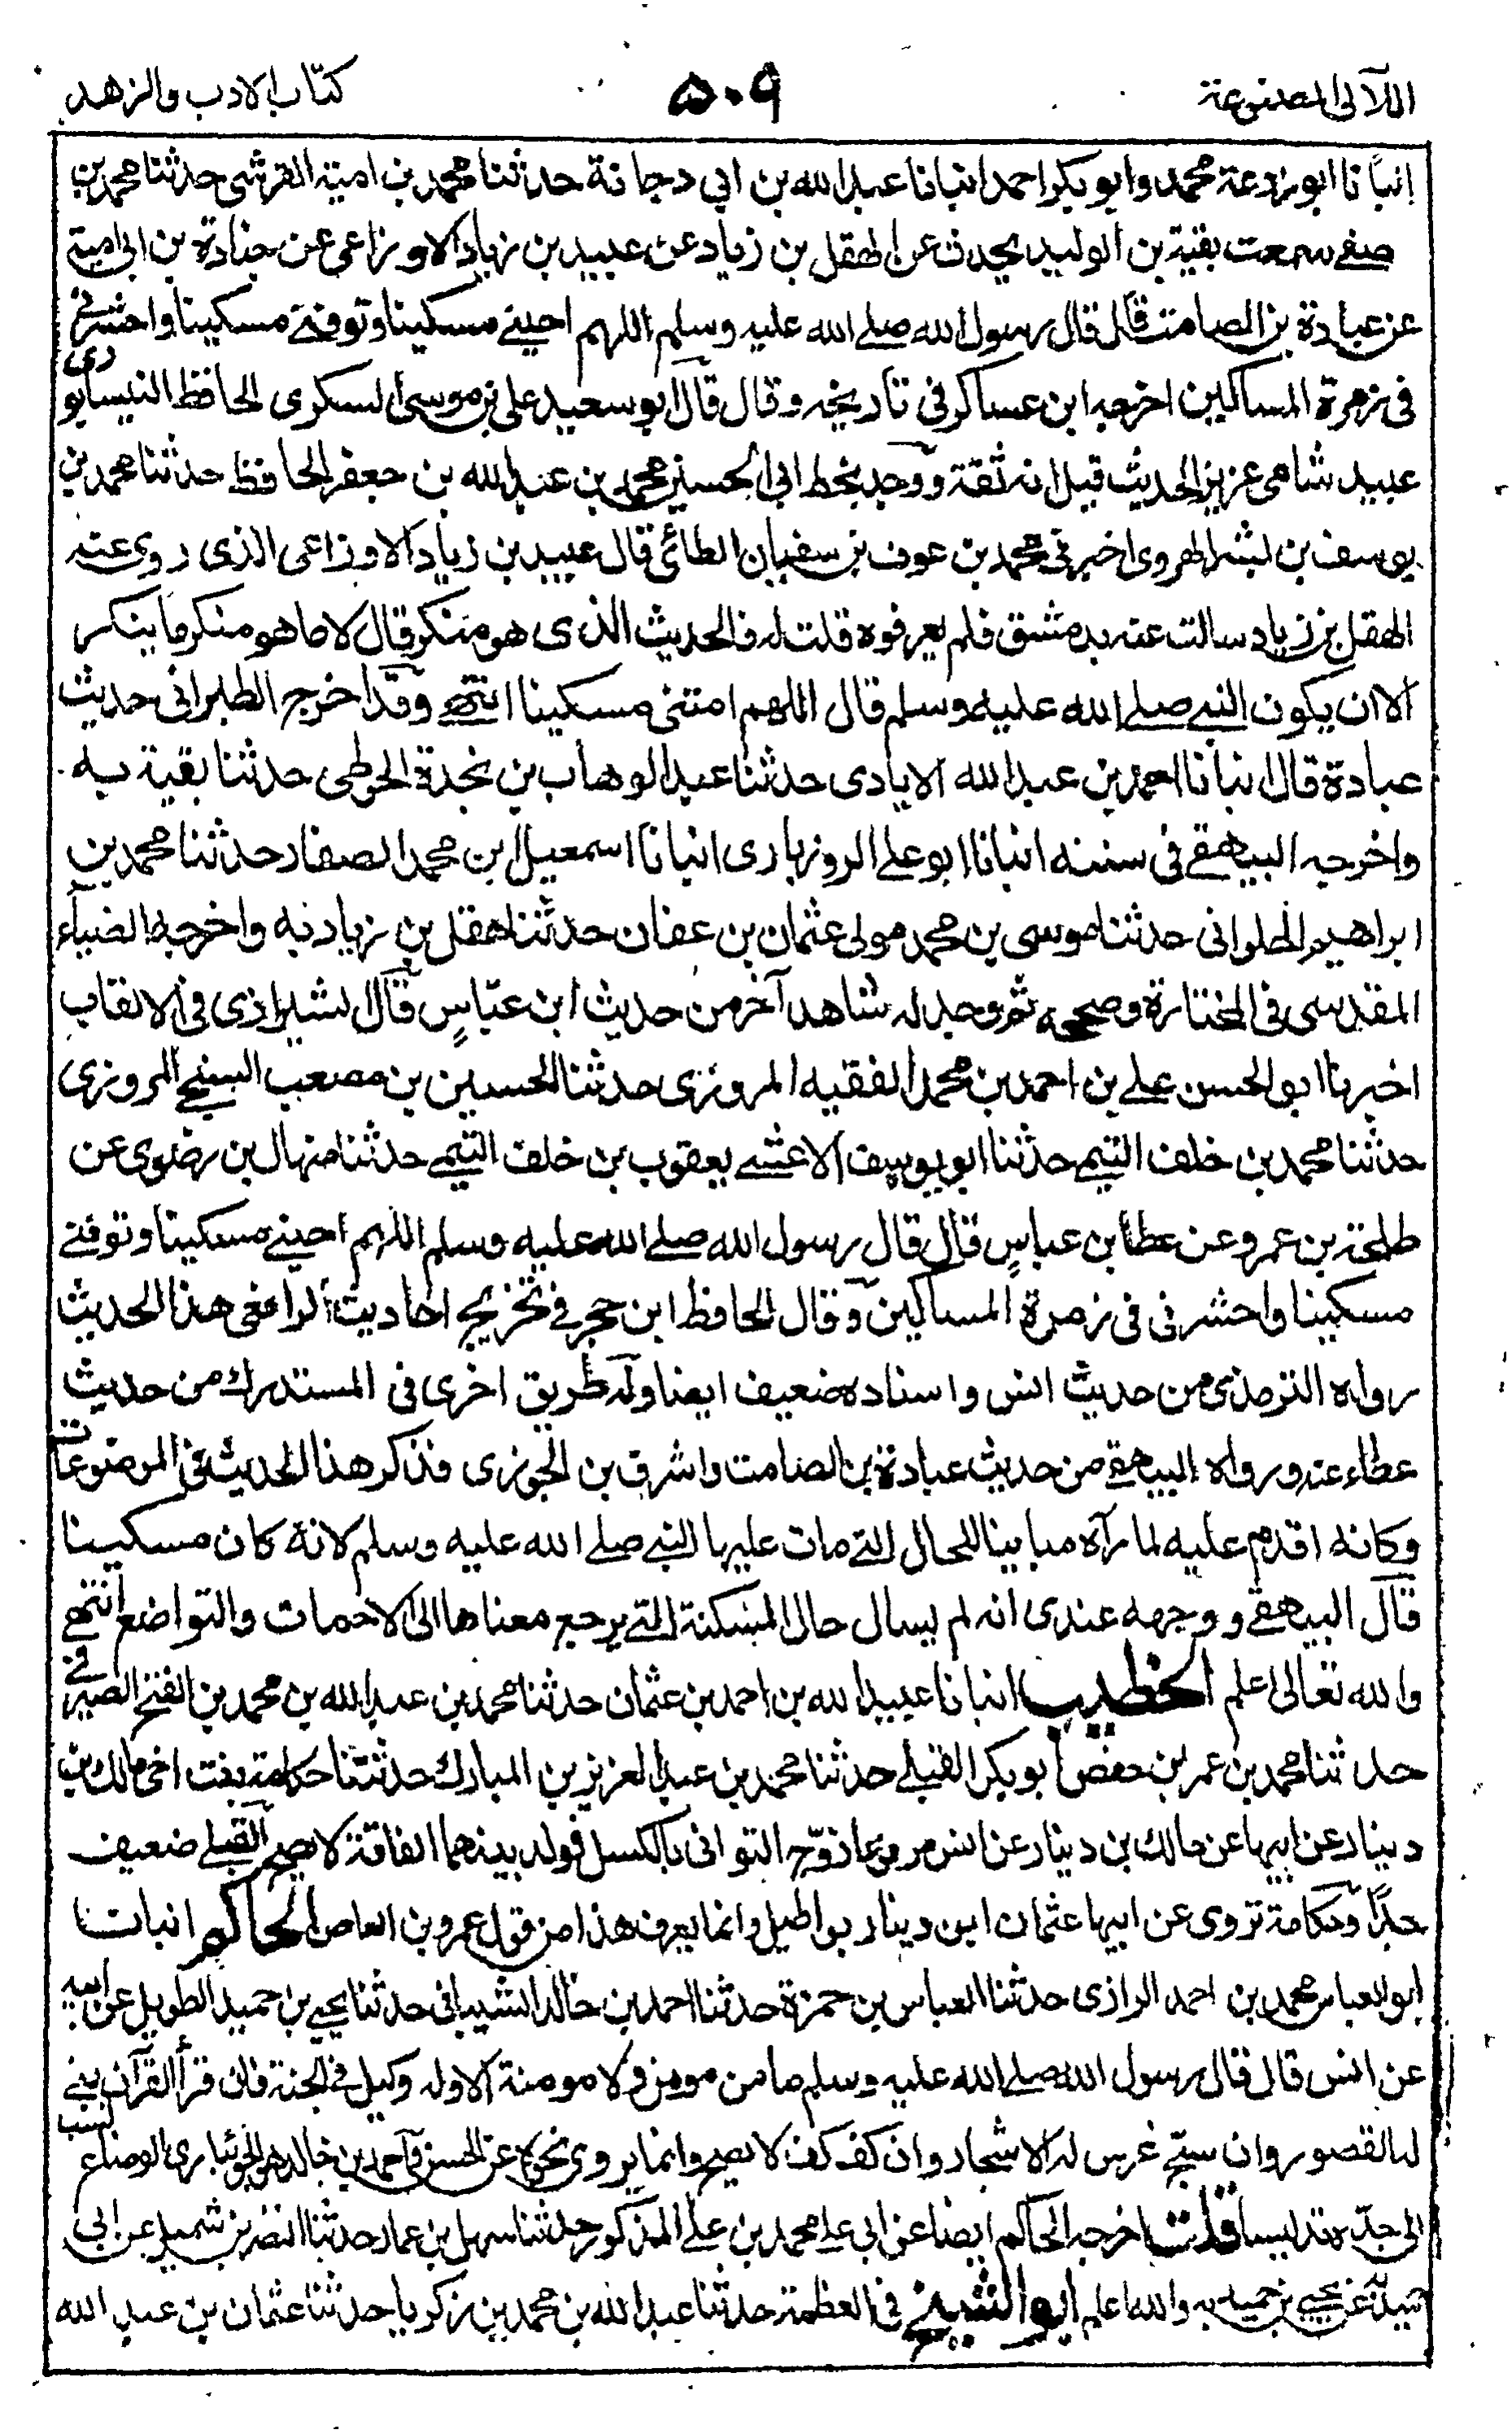 اللآلى المصنوعة
۵۰۹
كتاب الادب والزهد
انبأنا ابو زرعة محمد وابو بكر احمد انبانا عبد الله بن ابي دجانة حدثنا محمد بن امية القرشى حدثنا محمد بن
صفے سمعت بقية بن الوليد يحدث عن الهقل بن زياد عن عبيد بن زياد الاوزاعى عن جنادة بن ابى امية
عن عبادة بن الصامت قال قال رسول الله صلے الله عليه وسلم اللهم احينے مسكينا وتوفنے مسكينا واحشرنے
فى زمرة المساكين اخرجه ابن عساكر فى تاريخه وقال قال ابو سعيد على بن موسى السكرى الحافظ النيسابورى
عبيد شامى عزيز الحديث قيل انه ثقة ووجد بخط ابى الحسين محمد بن عبد الله بن جعفر الحافظ حدثنا محمد بن
يوسف بن بشر الهروى اخبرنى محمد بن عوف بن سفيان الطائى قال عبيد بن زياد الاوزاعى الذى روى عنه
الهقل بن زياد سالت عنه بدمشق فلم يعرفوه قلت له فالحديث الذى هو منكر قال لا ما هو منكر ما ينكر
الا ان يكون النبے صلے الله عليه وسلم قال اللهم امتنى مسكينا انتهے وقد اخرج الطبرانى حديث
عبادة قال انبانا احمد بن عبد الله الايادى حدثنا عبد الوهاب بن نجدة الحوطى حدثنا بقية به
واخرجه البيهقے فى سننه انبانا ابو علے الروزبارى انبانا اسمعيل ابن محمد الصفار حدثنا محمد بن
ابراهيم الحلوانى حدثنا موسى بن محمد مولى عثمان بن عفان حدثنا هقل بن زياد نه واخرجه الضياء
المقدسى فى المختارة وصححه ثم وجد له شاهدا آخر من حديث ابن عباس قال الشيرازى فى الالقاب
اخبرنا ابو الحسن علے بن احمد بن محمد الفقيه المروزى حدثنا الحسين بن مصعب السنجے المروزى
حدثنا محمد بن خلف التيمے حدثنا ابو يوسف الاعشے يعقوب بن خلف التيمے حدثنا منهال بن رضوى عن
طلحة بن عمرو عن عطا بن عباس قال قال رسول الله صلے الله عليه وسلم اللهم احينے مسكينا وتوفنے
مسكينا واحشرنى فى زمرة المساكين وقال الحافظ ابن حجر فے تخريج احاديث الرافعى هذا الحديث
رواه الترمذى من حديث انس واسناده ضعيف ايضا وله طريق اخرى فى المستدرك من حديث
عطاء عنه ورواه البيهقے من حديث عبادة بن الصامت واشرف بن الجوزى فذكر هذا الحديث فى الموضوعات
وكانه اقدم عليه لما رآه مباينا للحال التے مات عليها النبے صلے الله عليه وسلم لانه كان مسكينا
قال البيهقے ووجهه عندى انه لم يسال حال المسكنة التے يرجع معناها الى الاخمات والتواضع انتهے
والله تعالى اعلم الخطيب انبانا عبيد الله بن احمد بن عثمان حدثنا محمد بن عبد الله بن محمد بن الفتح الصيرفے
حدثنا محمد بن عمر بن حفص ابو بكر القبلے حدثنا محمد بن عبد العزيز بن المبارك حدثتنا حكامة بنت اخى مالك بن
دينار عن ابيها عن مالك بن دينار عن انس مرفوعا زوّج التوانى بالكسل فولد بينهما الفاقة لا يصح القبلے ضعيف
جدا وحكامة تروى عن ابيها عثمان ابن دينار بواطيل وانما يعرف هذا من قول عمرو بن العاص الحاكم انباتنا
ابو العباس محمد بن احمد الرازى حدثنا العباس بن حمزة حدثنا احمد بن خالد الشيبانى حدثنا يحيے بن حميد الطويل عن ابيه
عن انس قال قال رسول الله صلے الله عليه وسلم ما من مومن ولا مومنة الا وله وكيل فے الجنة فان قرأ القرآن بنے
له القصور وان سبّح غرس له الاشجار وان كف كف لا يصح وانما يروى نحوه عن الحسن وآحمد بن خالد هو الجوئبارى الوضاع نسب
الى جدّه تدليسا قلت اخرجه الحاكم ايضا عن ابى علے محمد بن علے المذكور حدثنا سهل بن عمار حدثنا النضر بن شميل عن ابى
عن يحيے بن حميد به والله اعلم ابو الشيخ فى العظمة حدثنا عبد الله بن محمد بن زكريا حدثنا عثمان بن عبد الله